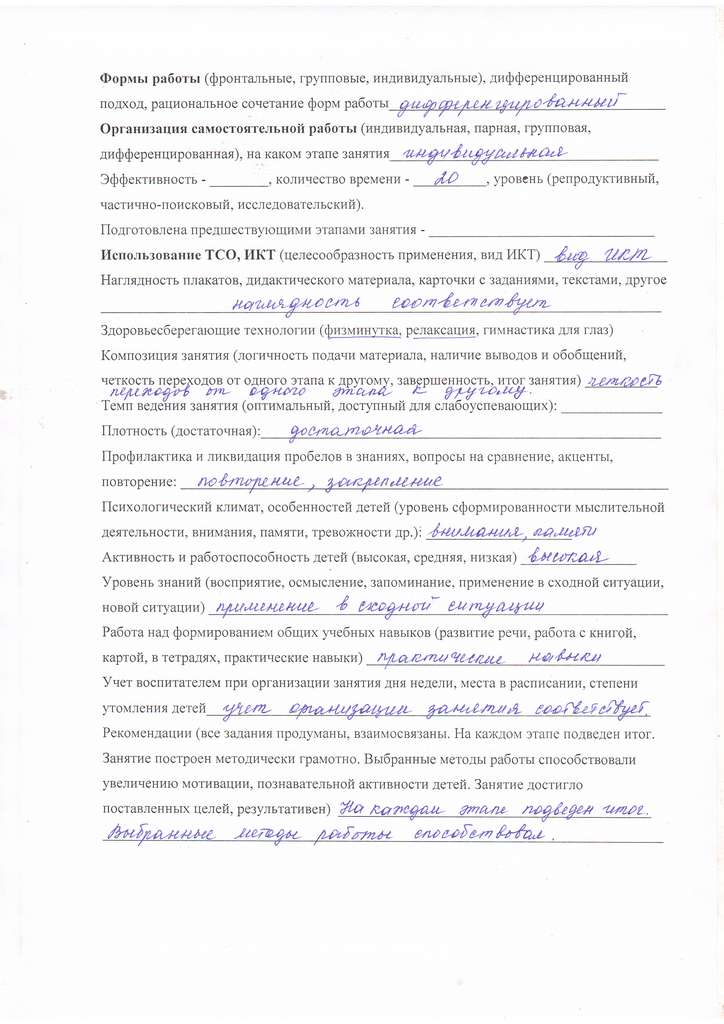 Формы работы (фронтальные, групповые, индивидуальные), дифференцированный
подход, рациональное сочетание форм работы дифференцированный
Организация самостоятельной работы (индивидуальная, парная, групповая,
дифференцированная), на каком этапе занятия индивидуальная
Эффективность - ________, количество времени - 20, уровень (репродуктивный,
частично-поисковый, исследовательский).
Подготовлена предшествующими этапами занятия - ________
Использование ТСО, ИКТ (целесообразность применения, вид ИКТ) вид ИКТ
Наглядность плакатов, дидактического материала, карточки с заданиями, текстами, другое
наглядность соответствует
Здоровьесберегающие технологии (физминутка, релаксация, гимнастика для глаз)
Композиция занятия (логичность подачи материала, наличие выводов и обобщений,
четкость переходов от одного этапа к другому, завершенность, итог занятия) четкость
переходов от одного этапа к другому.
Темп ведения занятия (оптимальный, доступный для слабоуспевающих): ________
Плотность (достаточная): достаточная
Профилактика и ликвидация пробелов в знаниях, вопросы на сравнение, акценты,
повторение: повторение, закрепление
Психологический климат, особенностей детей (уровень сформированности мыслительной
деятельности, внимания, памяти, тревожности др.): внимания, памяти
Активность и работоспособность детей (высокая, средняя, низкая) высокая
Уровень знаний (восприятие, осмысление, запоминание, применение в сходной ситуации,
новой ситуации) применение в сходной ситуации
Работа над формированием общих учебных навыков (развитие речи, работа с книгой,
картой, в тетрадях, практические навыки) практические навыки
Учет воспитателем при организации занятия дня недели, места в расписании, степени
утомления детей учет организации занятия соответствует.
Рекомендации (все задания продуманы, взаимосвязаны. На каждом этапе подведен итог.
Занятие построен методически грамотно. Выбранные методы работы способствовали
увеличению мотивации, познавательной активности детей. Занятие достигло
поставленных целей, результативен) На каждом этапе подведен итог.
Выбранные методы работы способствовал.